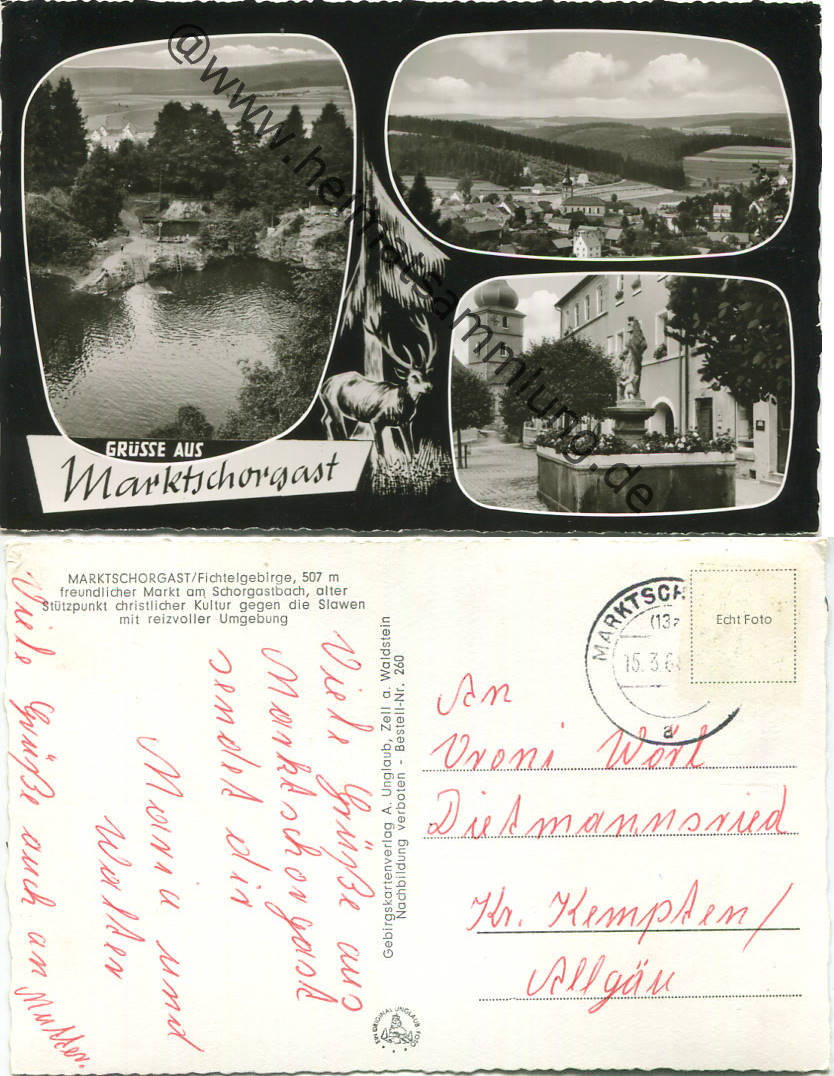 @www.heimatsammlung.de
GRÜSSE AUS
Marktschorgast
MARKTSCHORGAST/Fichtelgebirge, 507 m
freundlicher Markt am Schorgastbach, alter
Stützpunkt christlicher Kultur gegen die Slawen
mit reizvoller Umgebung
Viele Grüße aus
Marktschorgast
sendet dir
Maria und
Walter
Viele Grüße auch an Mutter.
Gebirgskartenverlag A. Unglaub, Zell a. Waldstein
Nachbildung verboten - Bestell-Nr. 260
EIN ORIGINAL UNGLAUB FOTO
MARKTSCH
(13a
15.3.6
a
Echt Foto
An
Vroni Wörl
Dietmannsried
Kr. Kempten/
Allgäu